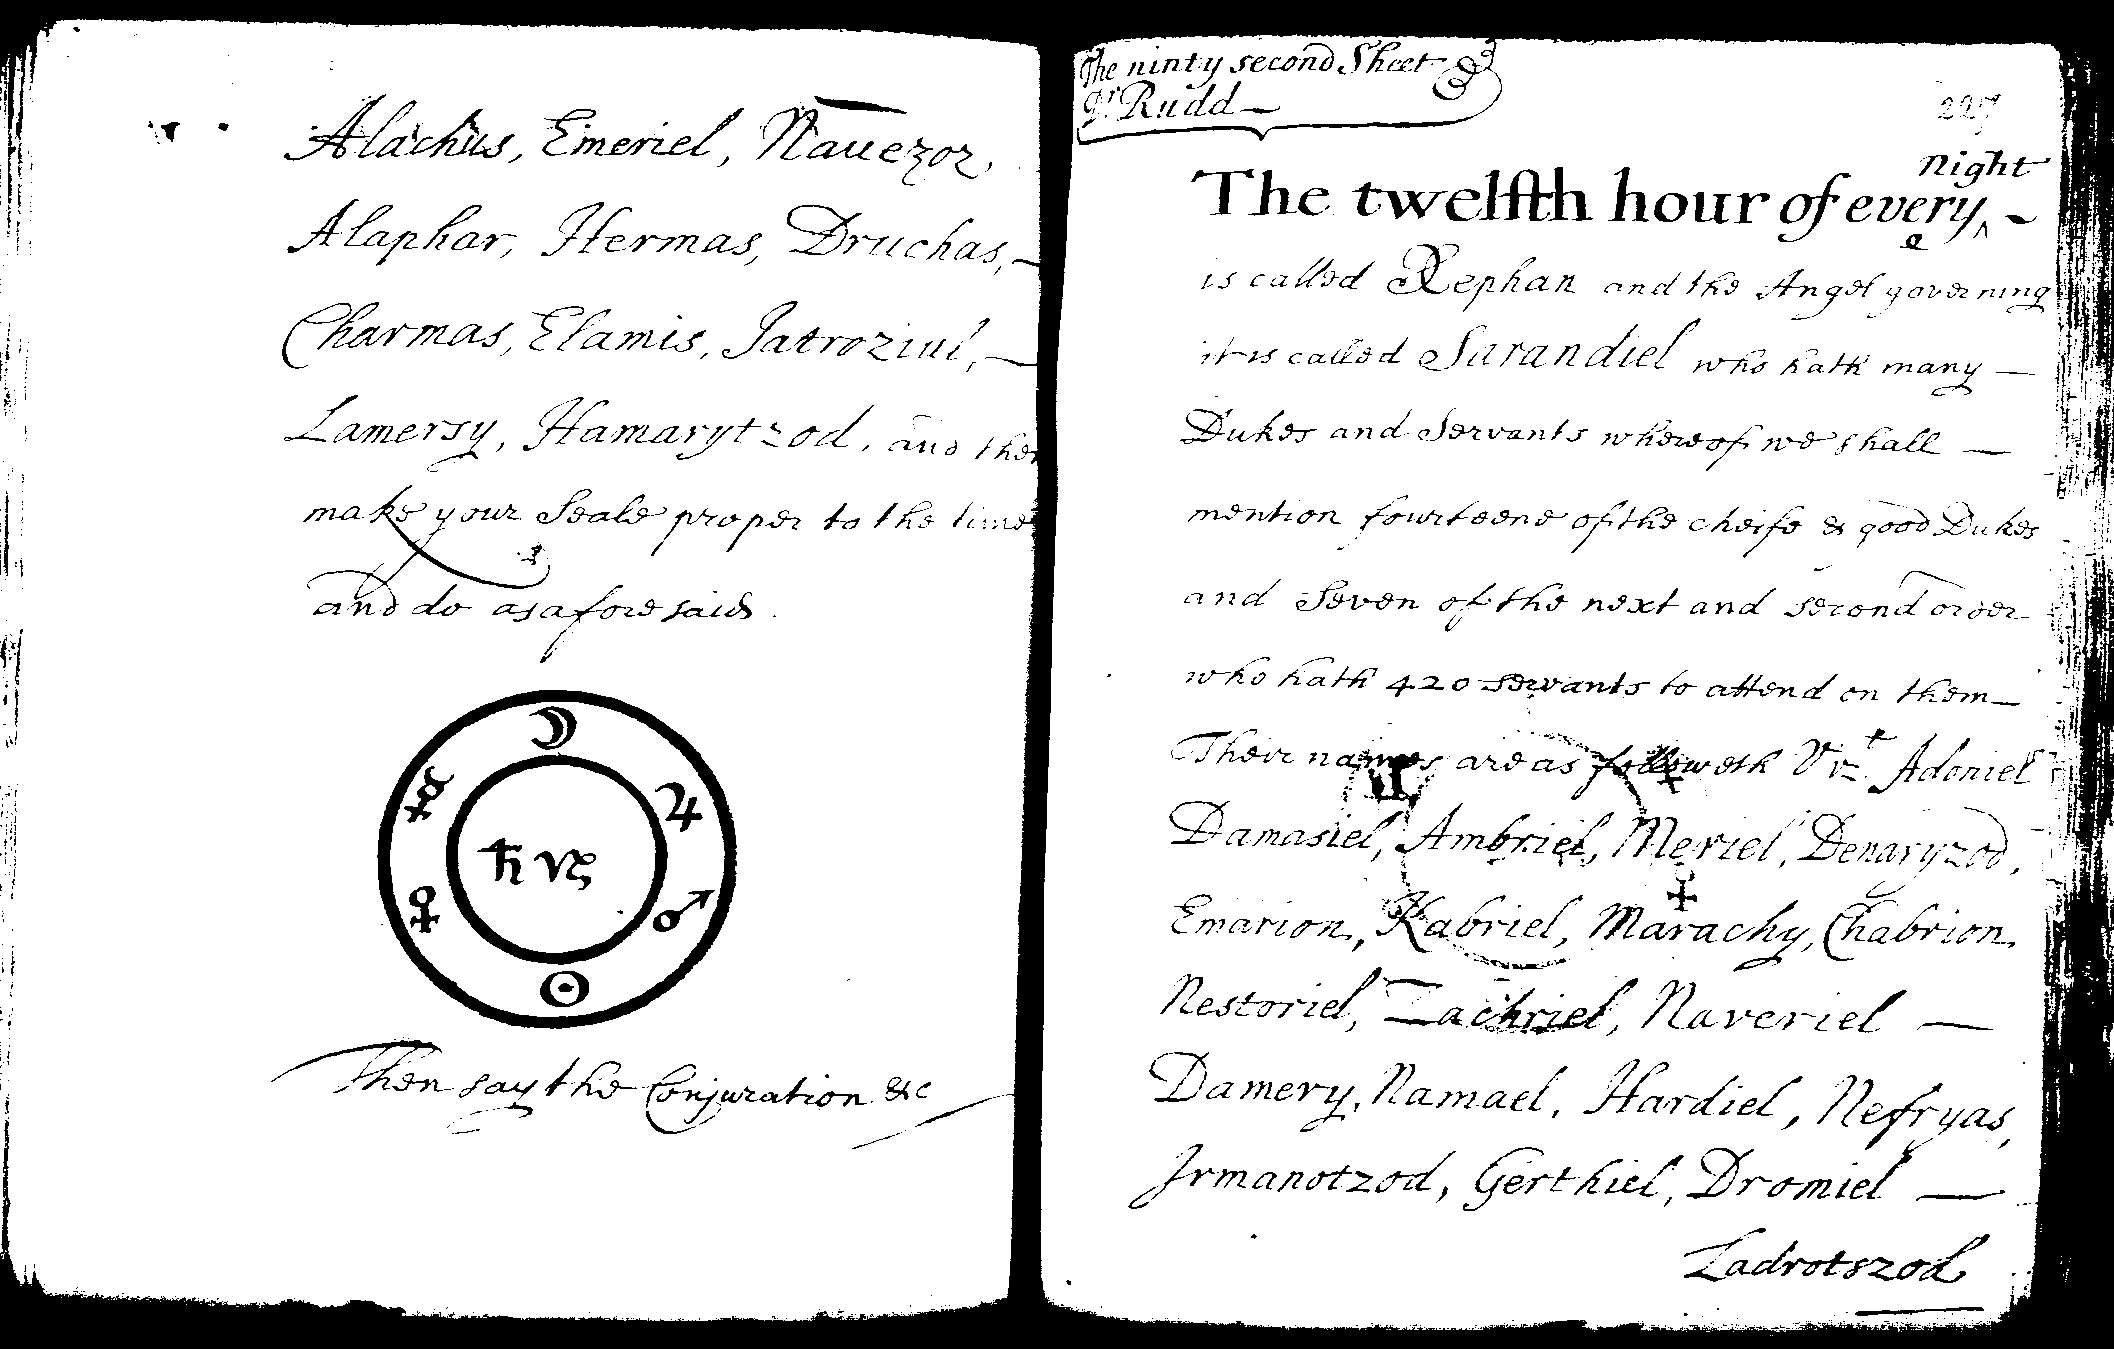 Alachus, Emeriel, Nauezoz,
Alaphar, Hermas, Druchas,
Charmas, Elamis, Jatroziul,
Lamersy, Hamarytzod, and then
make your Seale proper to the time
and do as aforesaid.
☽
☿ ♃
♄ ♑
♀ ♂
☉
Then say the Conjuration &c
The ninty second Sheet
Dr Rudd
227
Night
The twelfth hour of every
is called Xephan and the Angel governing
it is called Sarandiel who hath many
Dukes and Servants whereof we shall
mention fourteene of the cheife & good Dukes
and Seven of the next and second order
who hath 420 servants to attend on them
Their names are as followeth Vizt Adoniel
Damasiel, Ambriel, Meriel, Denaryzod,
Emarion, Kabriel, Marachy, Chabrion,
Nestoriel, Zachriel, Naveriel
Damery, Namael, Hardiel, Nefryas,
Irmanotzod, Gerthiel, Dromiel
Ladrotszod